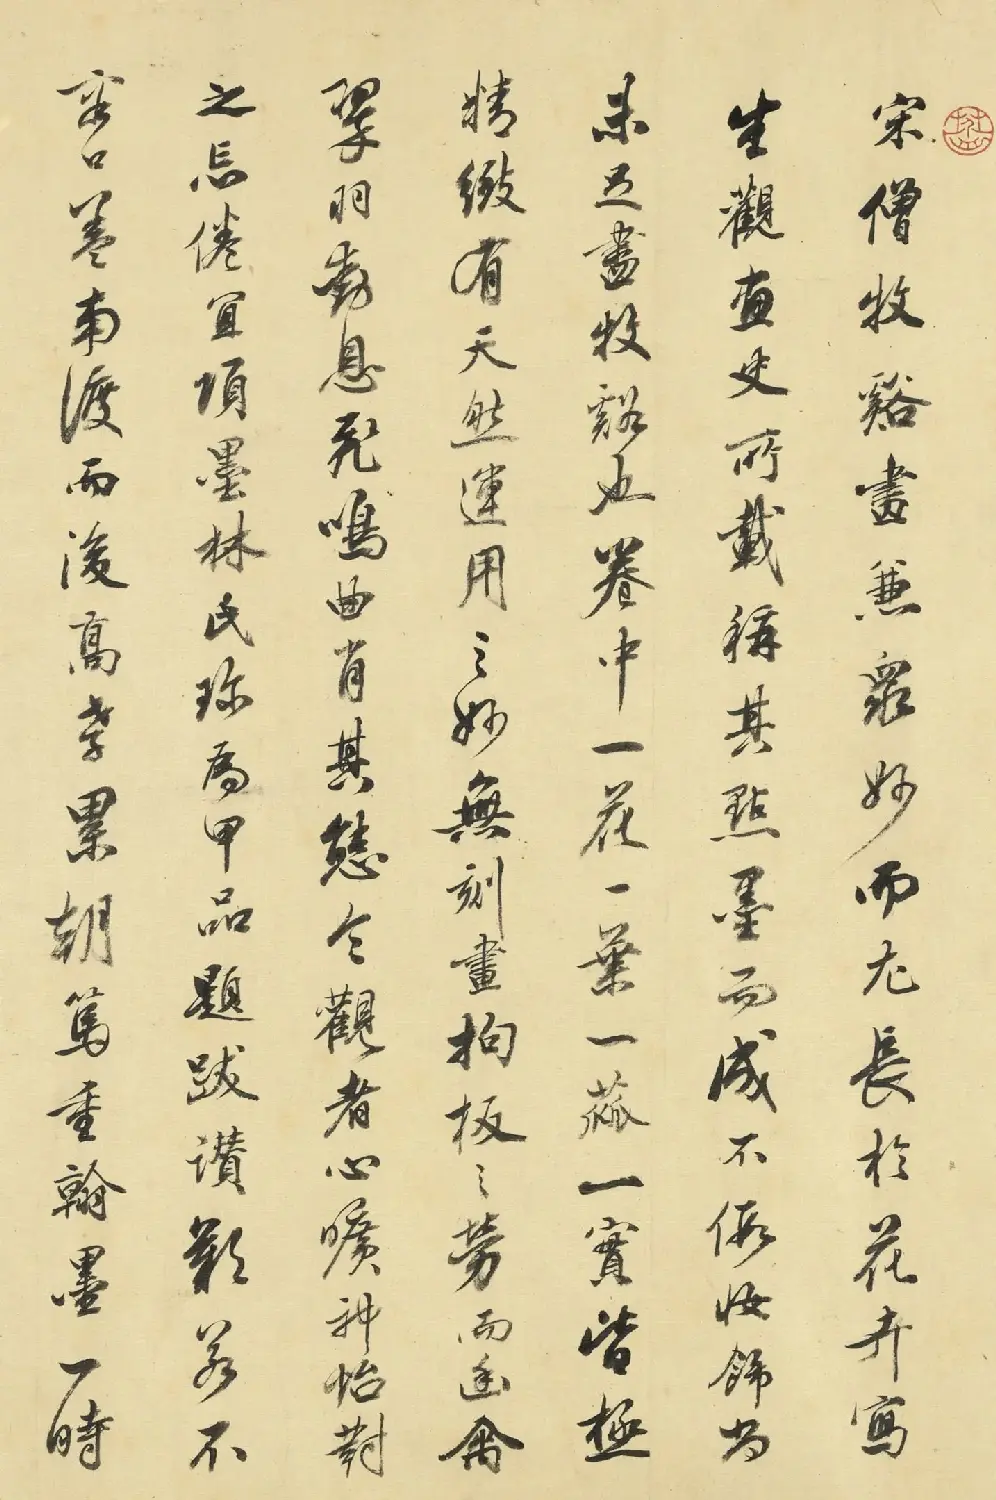 宋僧牧谿畫兼衆妙而尤長於花卉寫
生觀畫史所載稱其點墨而成不假妝飾尚
未足盡牧谿也卷中一花一葉一蓏一實皆極
精緻有天然運用之妙無刻畫拘板之勞而幽禽
翠羽動息飛鳴曲肖其態令觀者心曠神怡對
之忘倦宜項墨林氏珍為甲品題跋讚歎若不
容口蓋南渡而後高孝累朝篤重翰墨一時